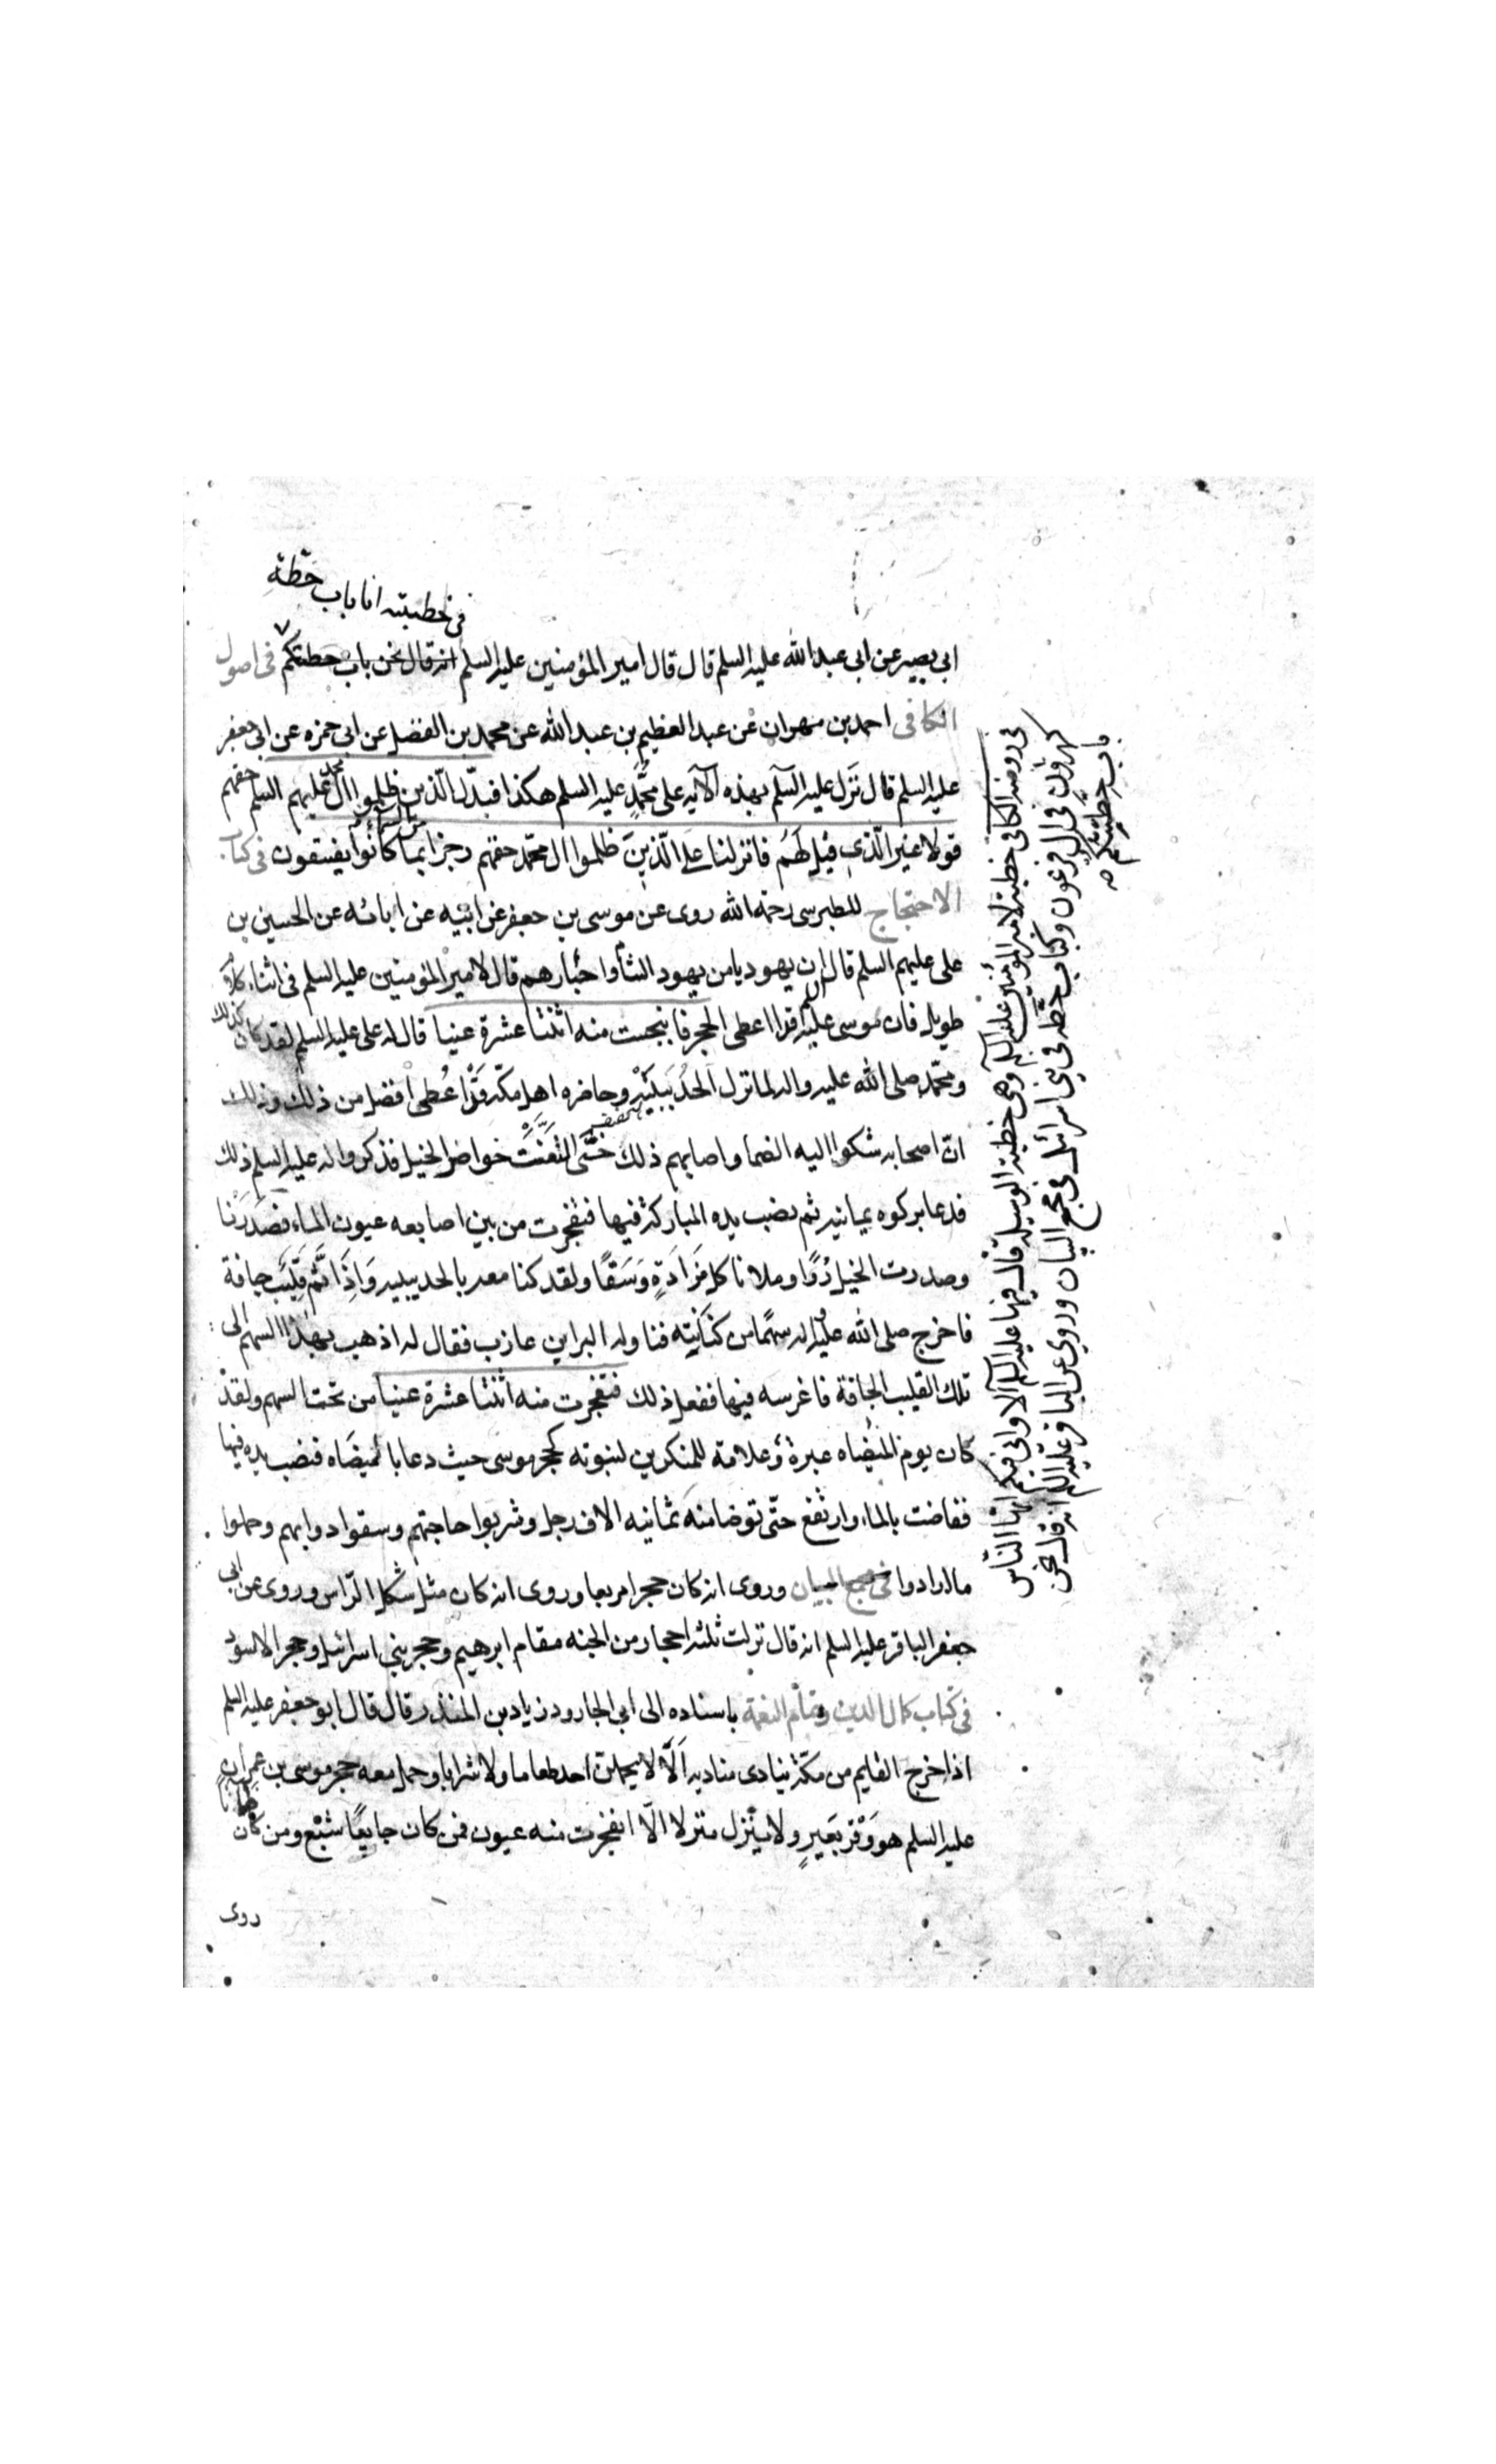 في خطبته انا باب حطة
ابي بصير عن ابي عبد الله عليه السلم قال قال امير المؤمنين عليه السلم انه قال نحن باب حطتكم في اصول
الكافي احمد بن مهران عن عبد العظيم بن عبد الله عن محمد بن الفضل عن ابي حمزه عن ابي جعفر
عليه السلم قال نَزَل عليه السلم بهذه الآيه على محمّدٍ عليه السلم هكذا فبدّل الّذين ظلموا آل محمد عليهم السلم حقهم
قولا غير الّذي قيل لَهُم فانزلنا على الّذينَ ظلموا ال محمّد حقهم رجزا من السماء بما كانُوا يفسقون في كتاب
الاحتجاج للطبرسي رحمة الله روى عن موسى بن جعفر عن ابيه عن ابائه عن الحسين بن
على عليهم السلم قال ان يهوديا من يهود الشأم واحبارهم قال لامير المؤمنين عليه السلم في اثناء كلام
طويل فان موسى عليه السلم قد اعطى الحجر فانبجست منه اثنتا عشرة عينا قال له على عليه السلم لقد كان كذلك
ومحمّد صلى الله عليه واله لما نزل الحُدَيبيَةَ وحاصره اهل مكّة قَدْ اُعطى افضل من ذلك وذلك
انّ اصحابه شكوا اليه الضما واصابهم ذلك حتّى التفّت خواصر الخيل فذكروا له عليه السلم ذلك
فدعا بركوه يمانيه ثم نصب يده المباركة فيها فتفجرت من بين اصابعه عيون الماء فصَدَرْنا
وصدرت الخيل رُوًّا وملانا كل مَزَادَةٍ وَسَقًا ولقد كنا معه بالحديبيه وَاِذَا ثَمَّ قَلِيبٌ جافة
فاخرج صلى الله عليه واله سهمًا من كنَانِته فناوله البرا بن عازب فقال له اذهب بهذا السهم الى
تلك القليب الجافة فاغرسه فيها ففعل ذلك فتفجرت منه اثنتا عشرة عينا من تحت السهم ولقد
كان يوم الميضاه عبرة وعلامة للمنكرين لنبوته كحجر موسى حيث دعا بالميضَاه فنصب يده فيها
ففاضت بالماء وارتفع حتّى توضا منه ثمانيه الاف رجل وشربوا حاجتهم وسقوا دوابهم وحملوا
ما ارادوا في مجمع البيان وروى انه كان حجرا مربعا وروى انه كان مثل شكل الرّاس وروى عن ابي
جعفر الباقر عليه السلم انه قال نزلت ثلثه احجار من الجنه مقام ابرهيم وحجر بني اسرائيل وحجر الاسود
في كتاب كمال الدين وتمام النعمة باسناده الى ابي الجارود زياد بن المنذر قال قال ابو جعفر عليه السلم
اذا خرج القايم من مكّة ينادى مناديه اَلَا لا يحملن احد طعاما ولا شرابا وحمل معه حجر موسى بن عمران
عليه السلم هو وَقْرُ بَعيرٍ ولا يَنْزل منزلا الّا انفجرت منه عيون فمن كان جايعًا شَبع ومن كان ظمانا
روى
في روضة الكافي خطبة لامير المؤمنين عليه السلم وهي خطبة الوسيلة قال فيها عليه السلم الا واني فيكم ايّها النّاس
كهرون في آل فرعون وكباب حطّة في بني اسرائيل في مجمع البيان وروي عن الباقر عليه السلم انه قال نحن
باب حِطّتكم صه